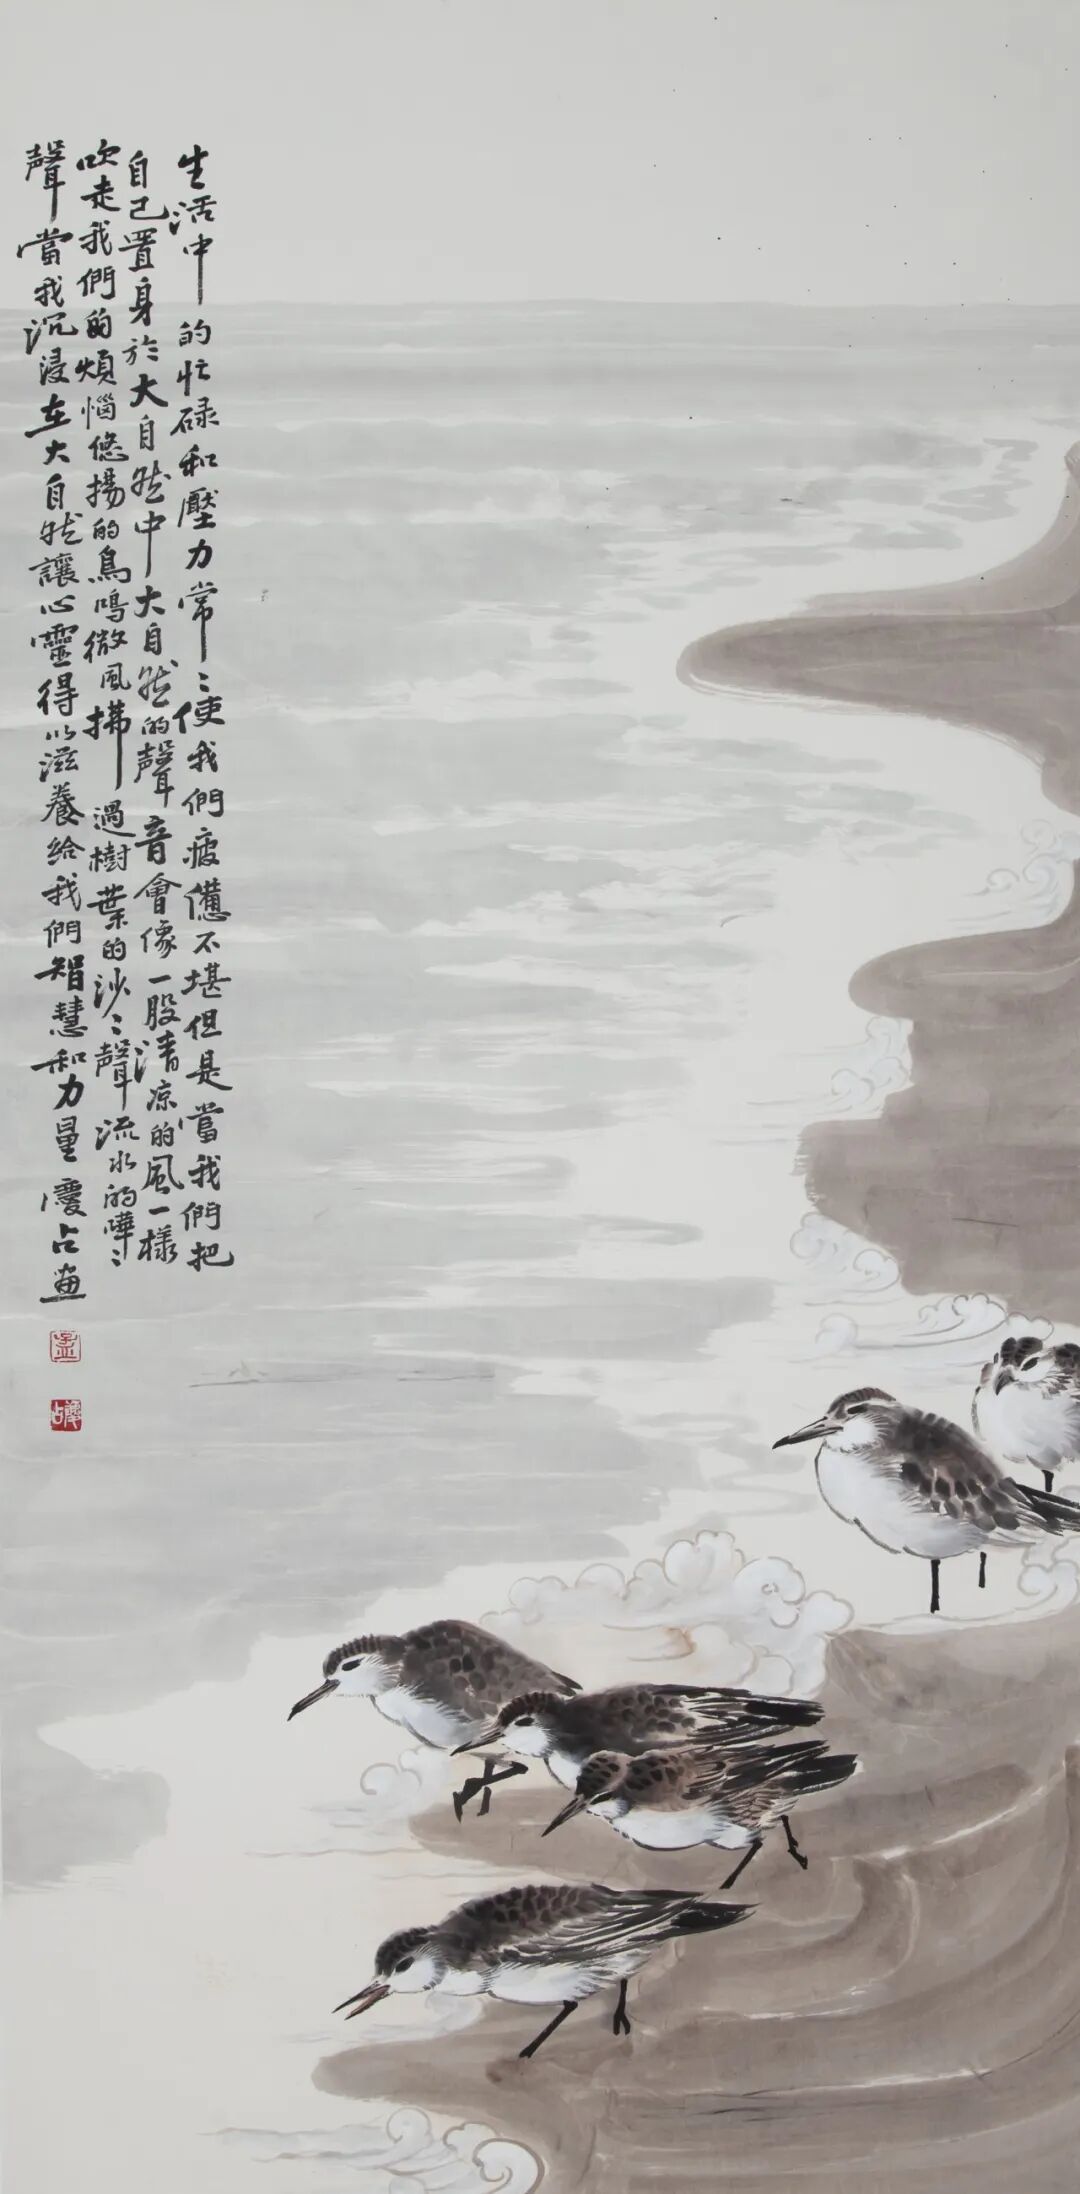 生活中的忙碌和壓力常〻使我們疲憊不堪但是當我們把
自己置身於大自然中大自然的聲音會像一股清凉的風一樣
吹走我們的煩惱悠揚的鳥鳴微風拂過樹葉的沙〻聲流水的嘩〻
聲當我沉浸在大自然讓心靈得以滋養給我們智慧和力量慶占畫
孟
慶占